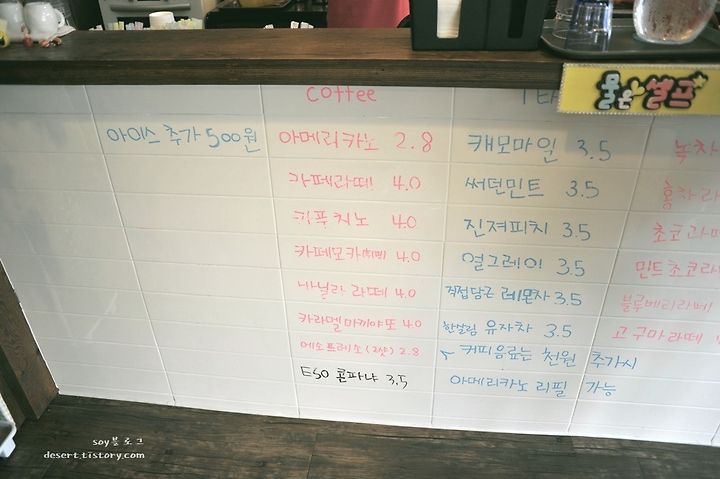 물은 셀프
Coffee
TEA
아이스 추가 500원
아메리카노 2.8
카페라떼 4.0
카푸치노 4.0
카페모카 4.0
바닐라 라떼 4.0
카라멜마끼아또 4.0
에소프레소 (2샷) 2.8
ESO 콘파냐 3.5
캐모마일 3.5
써던민트 3.5
진저피치 3.5
얼그레이 3.5
직접담근 레몬차 3.5
한살림 유자차 3.5
커피음료는 천원 추가시
아메리카노 리필 가능
녹차
홍차라
초코라떼
민트초코라
블루베리라떼
고구마라떼
soy블로그
desert.tistory.com